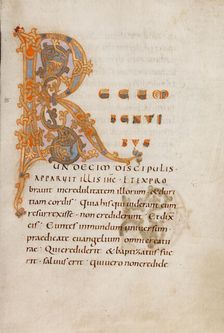 RECUM
BENTI
BUS
UNDECIM DISCIPULIS
APPARUIT ILLIS IHC · ET EXPRO
bravit incredulitatem illorum & duri
tiam cordis · Quia his qui viderant eum
resurrexisse · non crediderunt · Et dixit
eis · Euntes in mundum universum ·
praedicate evangelium omni creatu
rae · Qui crediderit & baptizatus fue
rit · salvus erit · qui vero non credide